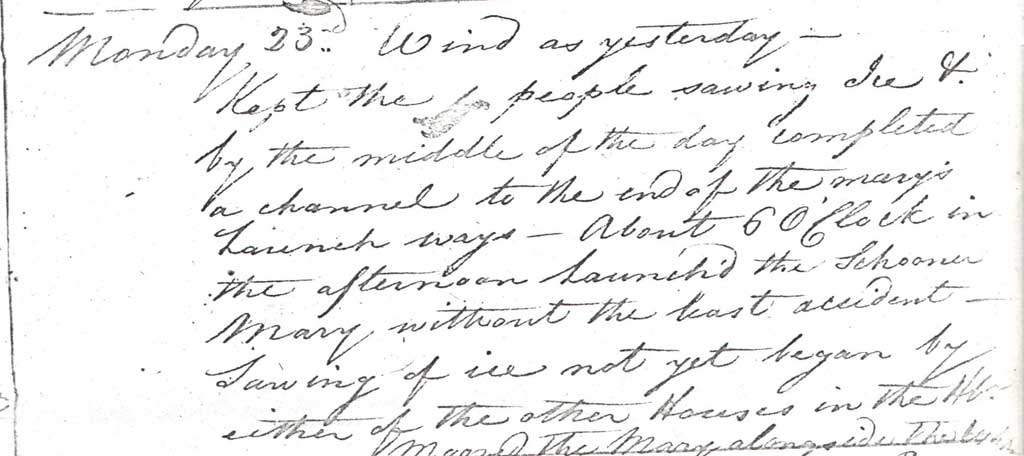 Monday 23rd Wind as yesterday —
Kept the people sawing Ice &
by the middle of the day completed
a channel to the end of the mary's
Launch ways — About 6 O'Clock in
the afternoon Launch'd the Schooner
Mary without the least accident —
Sawing of ice not yet began by
either of the other Houses in the Hbr
Moor'd the Mary alongside the